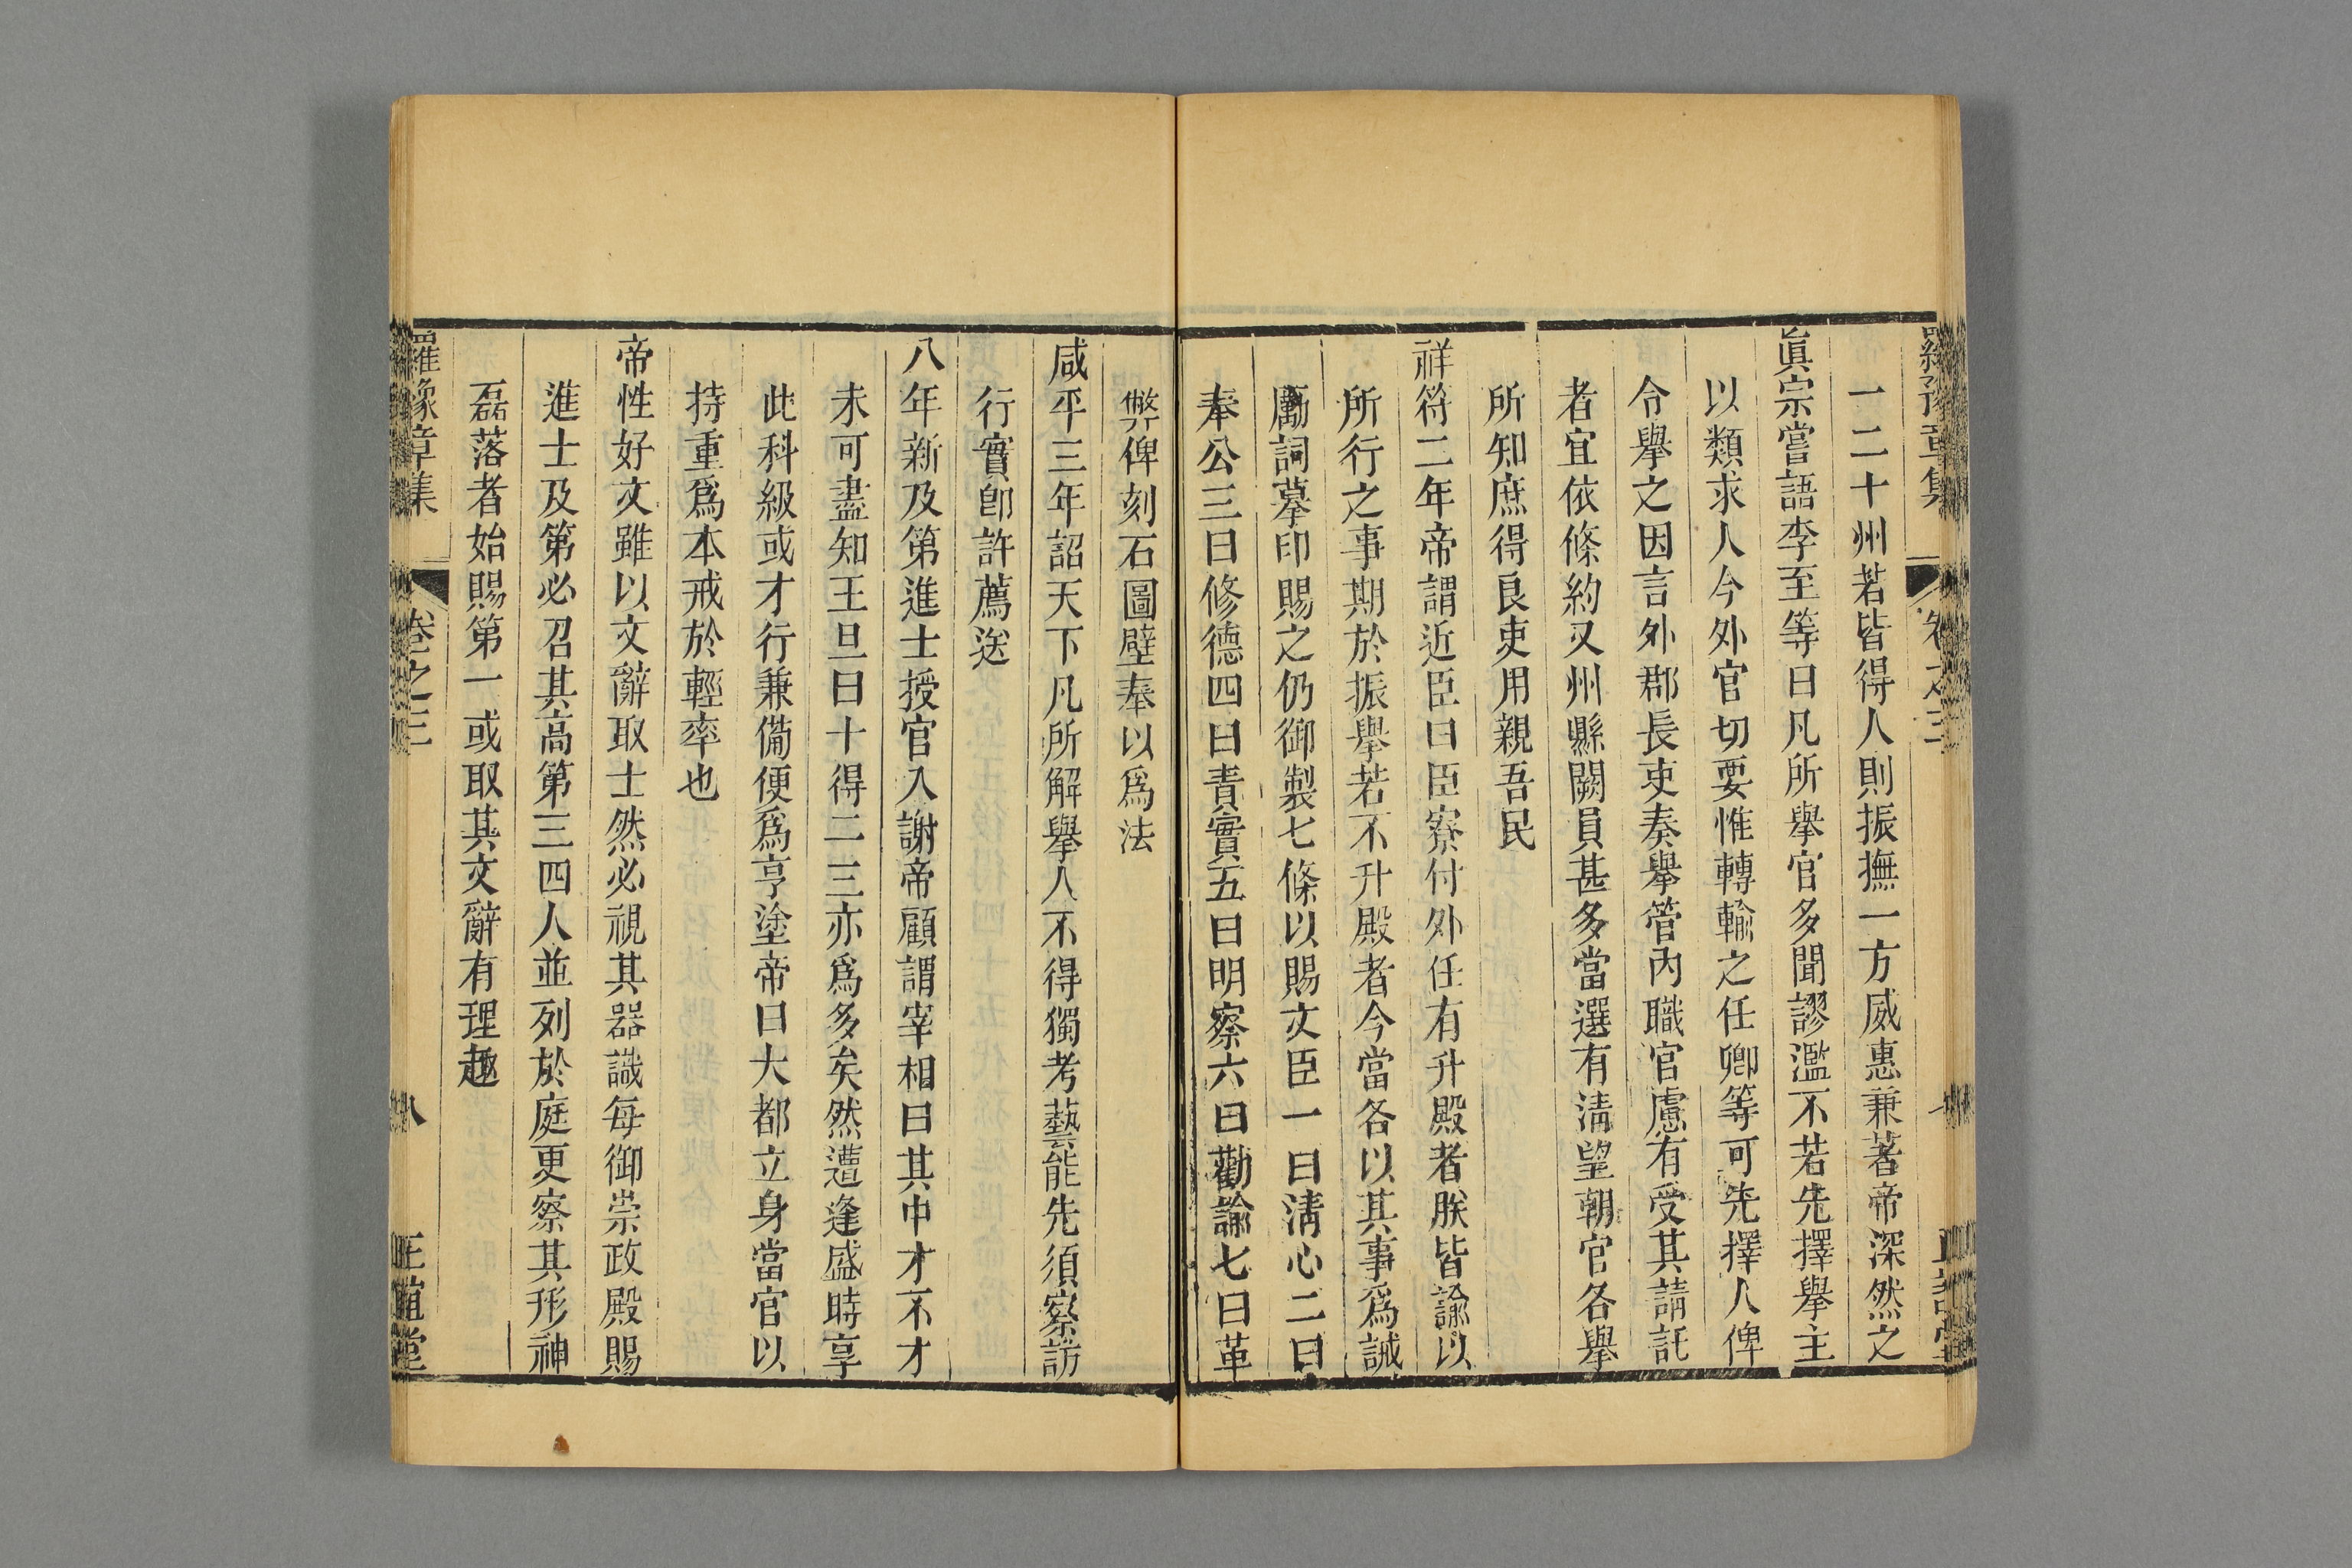 一二十州若皆得人則振撫一方威惠兼著帝深然之
眞宗嘗語李至等曰凡所舉官多聞謬濫不若先擇舉主
以類求人今外官切要惟轉輸之任卿等可先擇人俾
令舉之因言外郡長吏奏舉管內職官慮有受其請託
者宜依條約又州縣闕員甚多當選有淸望朝官各舉
所知庶得良吏用親吾民
祥符二年帝謂近臣曰臣寮付外任有升殿者朕皆諭以
所行之事期於振舉若不升殿者今當各以其事爲誡
勵詞摹印賜之仍御製七條以賜文臣一曰淸心二曰
奉公三曰修德四曰責實五曰明察六曰勸諭七曰革
弊俾刻石圖壁奉以爲法
咸平三年詔天下凡所解舉人不得獨考藝能先須察訪
行實卽許薦送
八年新及第進士授官入謝帝顧謂宰相曰其中才不才
未可盡知王旦曰十得二三亦爲多矣然遭逢盛時享
此科級或才行兼備便爲亨塗帝曰大都立身當官以
持重爲本戒於輕率也
帝性好文雖以文辭取士然必視其器識每御崇政殿賜
進士及第必召其高第三四人並列於庭更察其形神
磊落者始賜第一或取其文辭有理趣
羅豫章集
卷之三
八
正誼堂